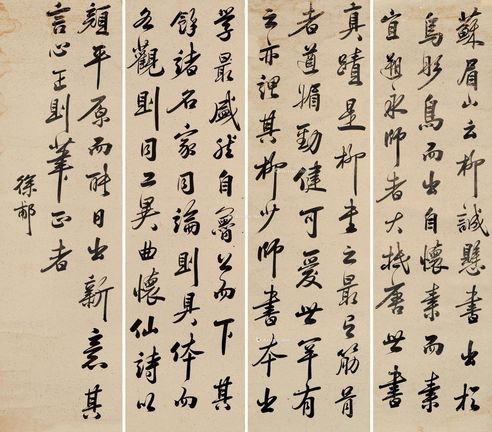 蘇眉山云柳誠懸書出於
烏彤烏而出自懷素而素
朔永師者大抵唐世書
真蹟是柳書之最有筋骨
者遒媚勁健可愛世罕有
之亦謂其柳少師書本出
學最盛然自魯公而下其
餘諸名家同論則具體而
各觀則同工異曲懷仙詩以
顏平原而能自出新意其
言心正則筆正者
徐郙